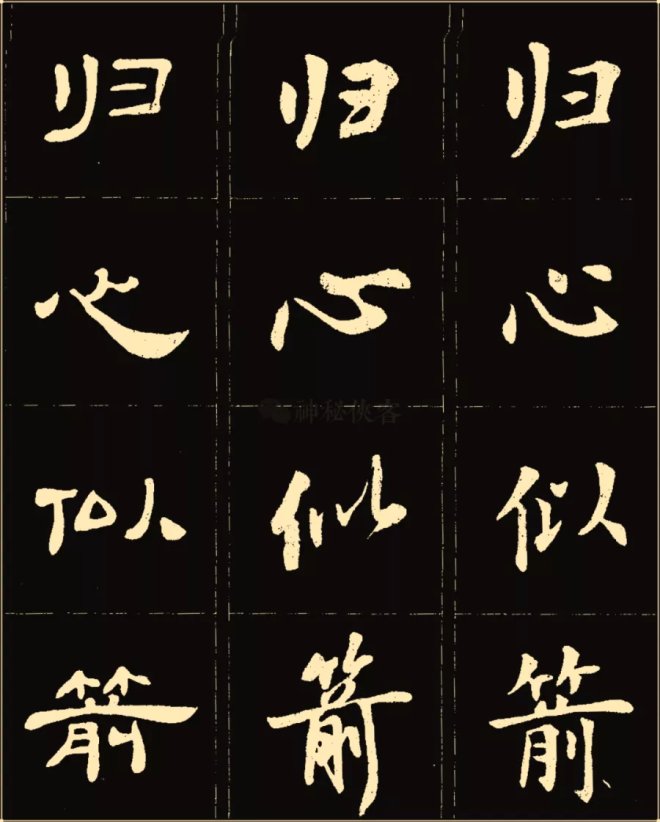 归心似箭
归心似箭
归心似箭
神秘侠客